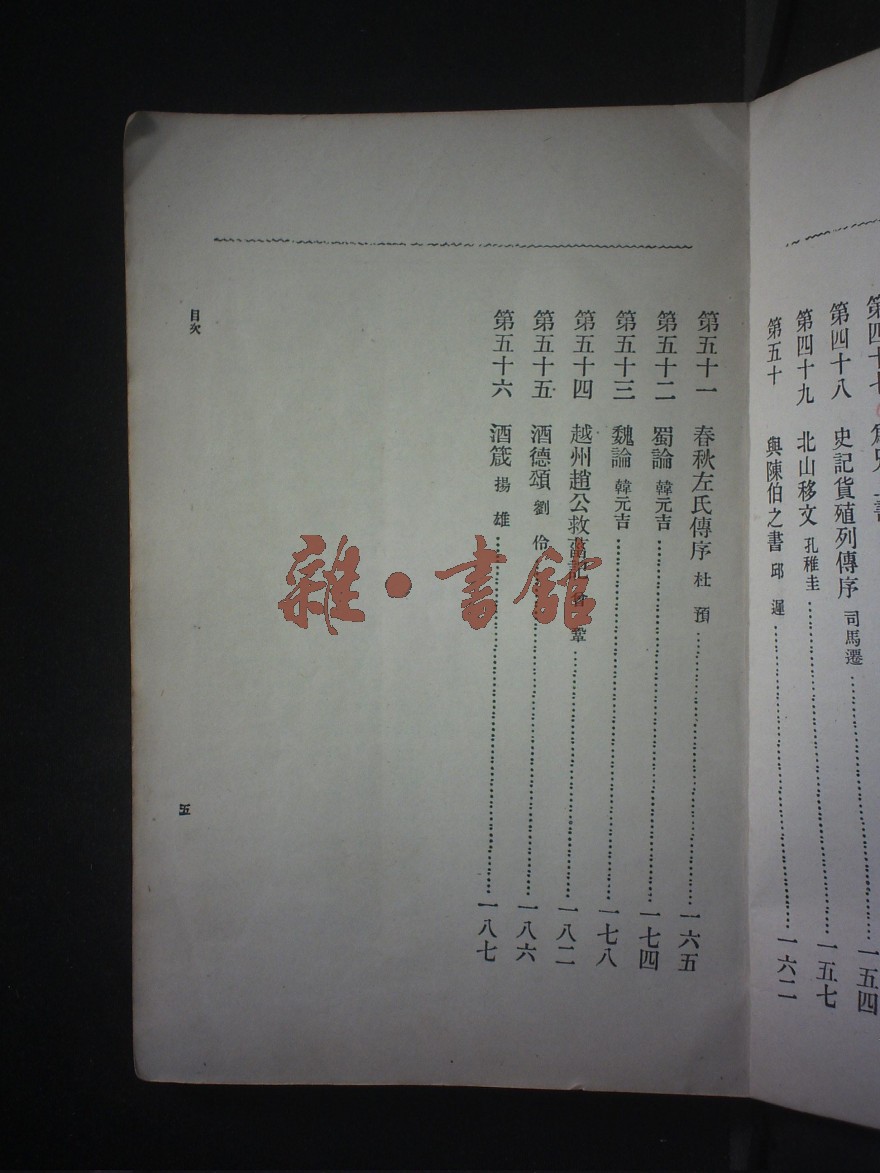 第四十八 史記貨殖列傳序 司馬遷 一五七
第四十九 北山移文 孔稚圭
第五十 與陳伯之書 邱遲 一六二
第五十一 春秋左氏傳序 杜預 一六五
第五十二 蜀論 韓元吉 一七四
第五十三 魏論 韓元吉 一七八
第五十四 越州趙公救 鞏 一八二
第五十五 酒德頌 劉伶 一八六
第五十六 酒箴 揚雄 一八七
目次
五
雜·書館